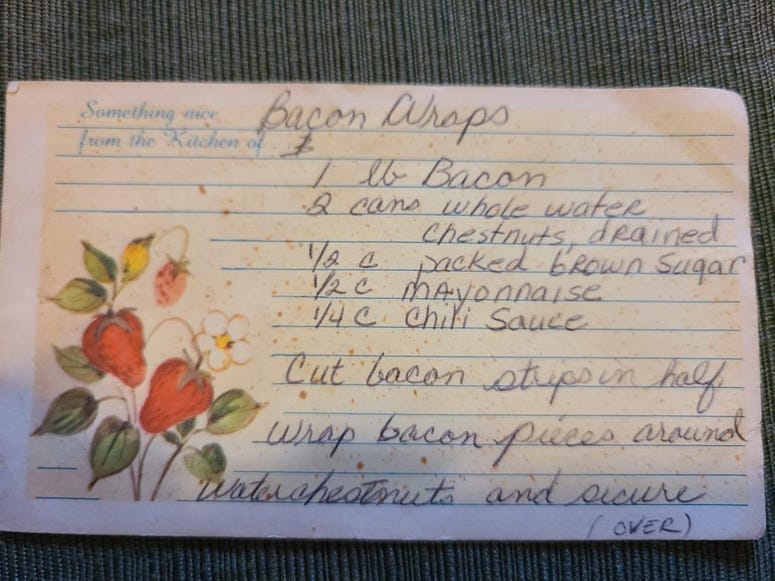 Something nice Bacon Wraps
from the Kitchen of
1 lb Bacon
2 cans whole water
chestnuts, drained
1/2 c packed brown sugar
1/2 c mayonnaise
1/4 c chili sauce
Cut bacon strips in half
wrap bacon pieces around
waterchestnuts and secure
(OVER)